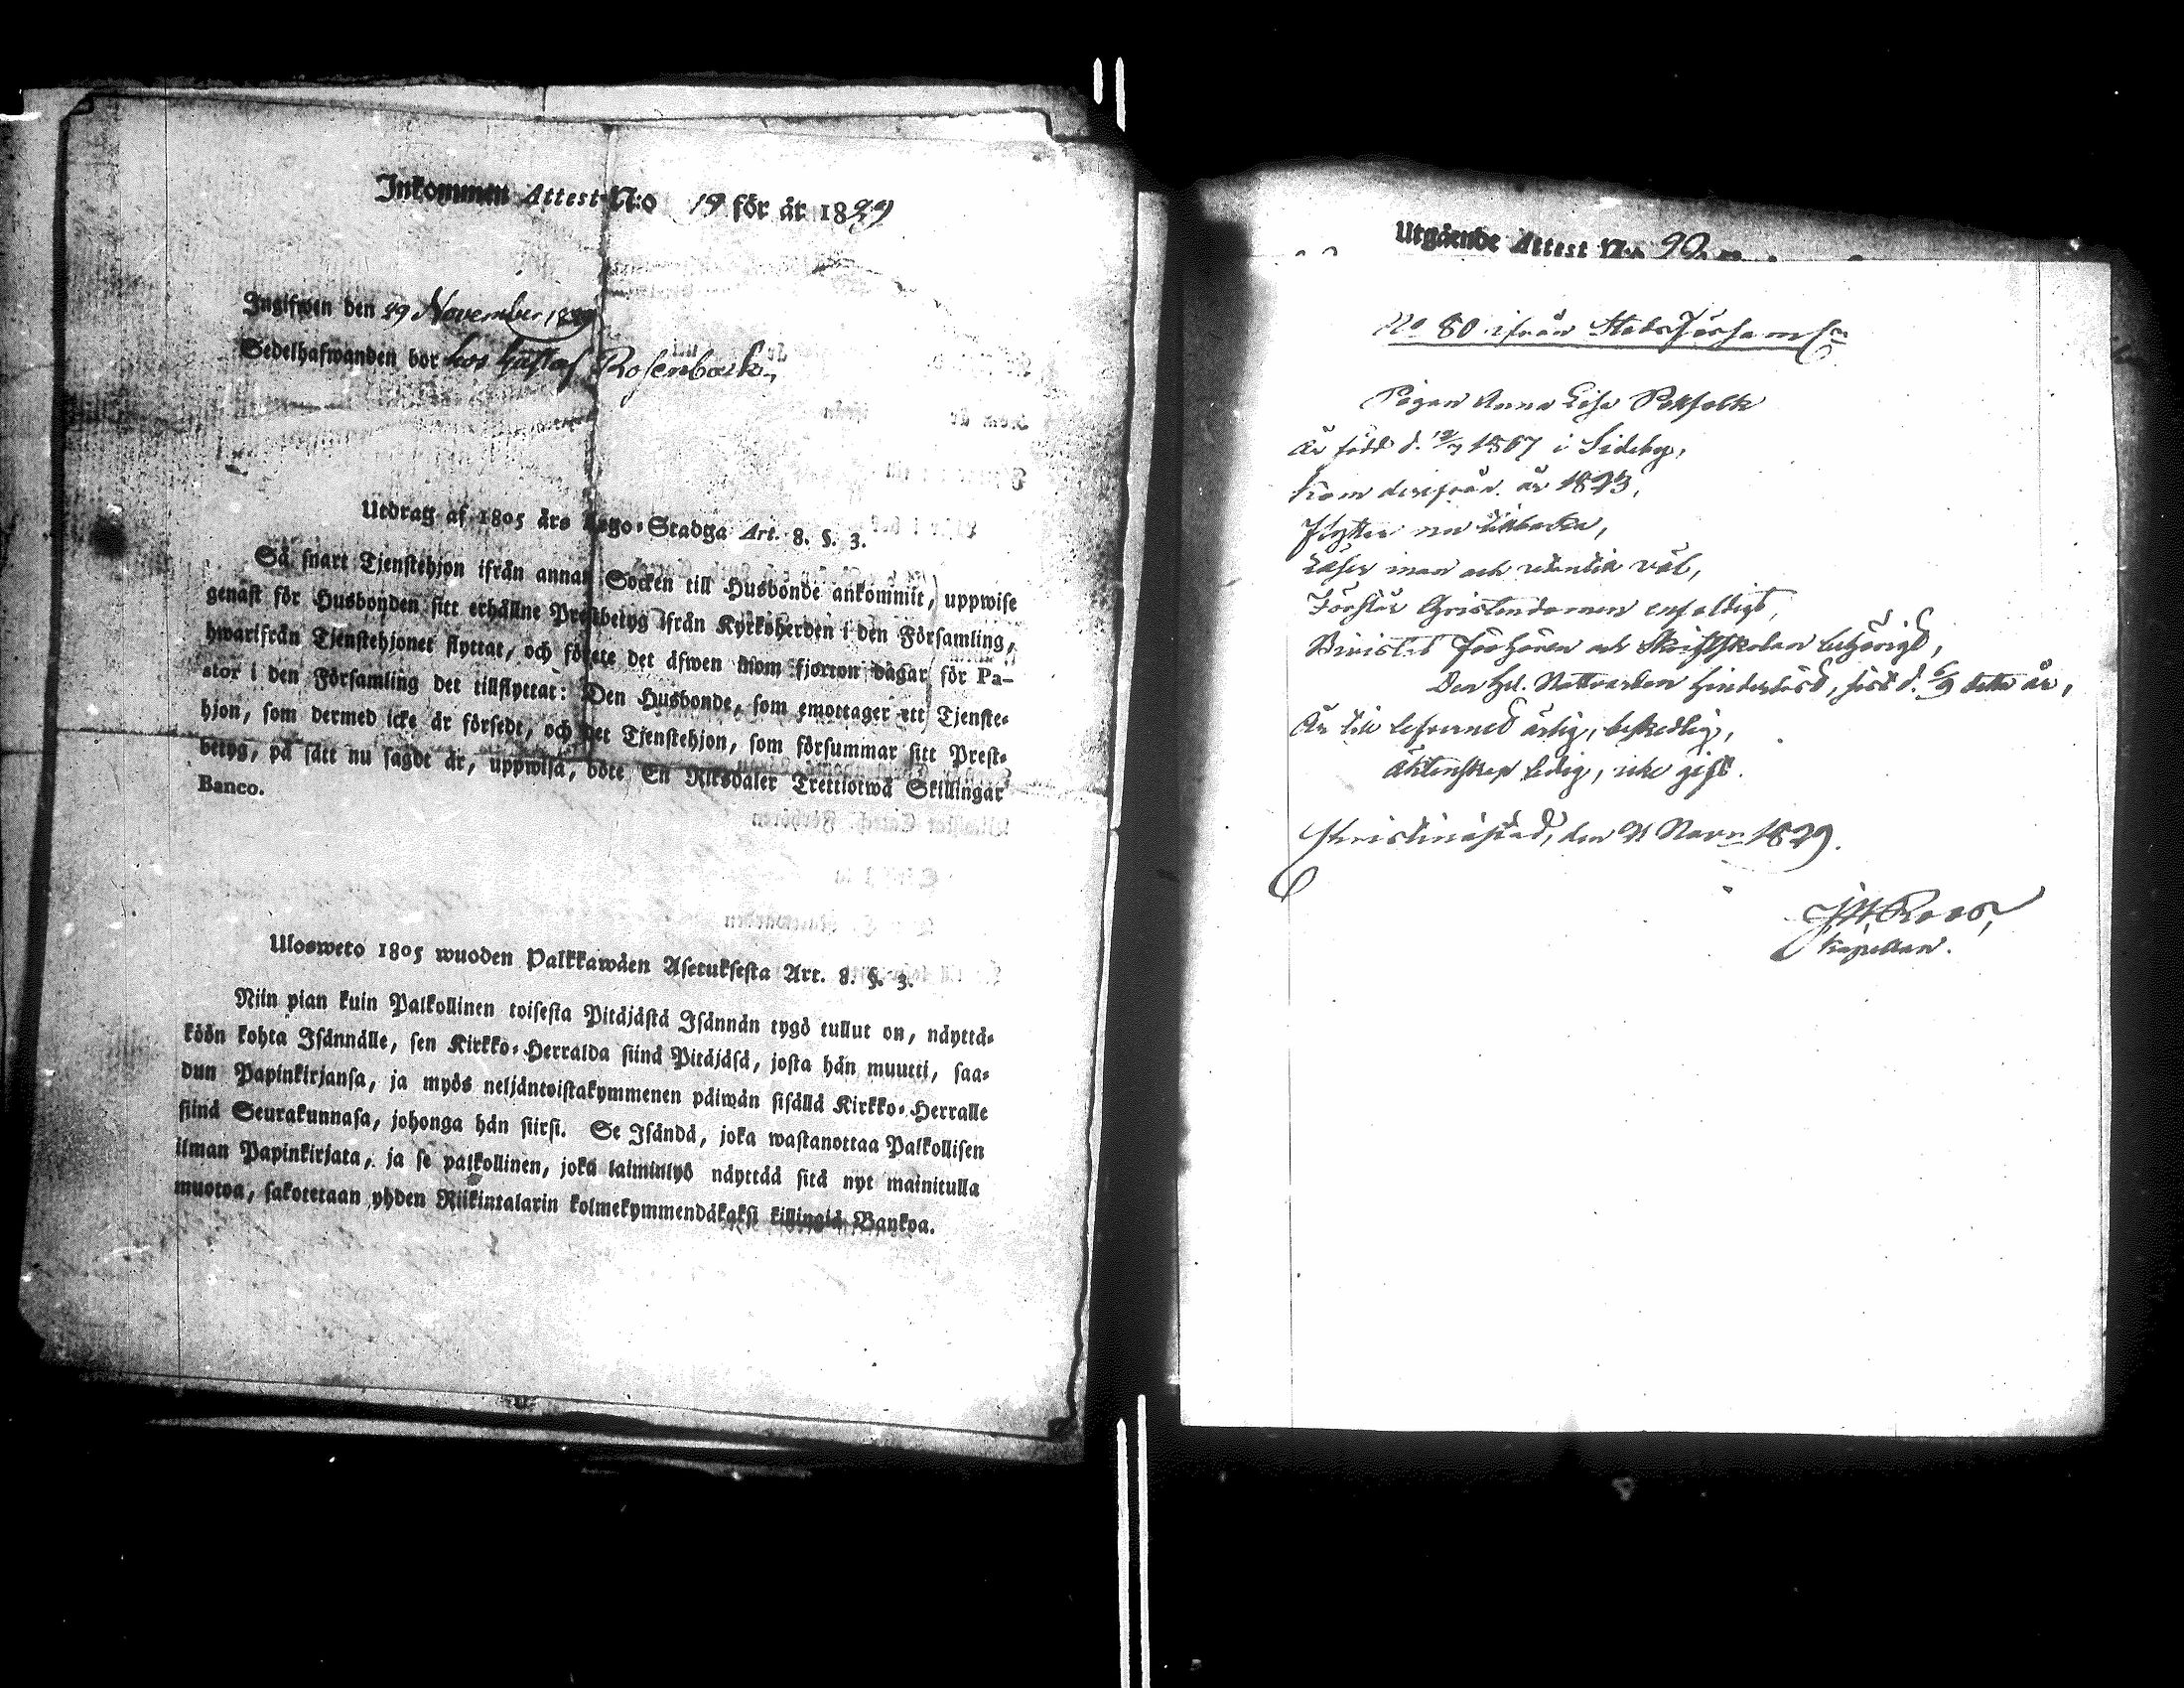 Inkommen Attest N:o 19 för år 1829
Ingifwen den 29 November 1829
Sedelhafwanden bor hos Gustaf Rosenback,
Utdrag af 1805 års Lego-Stadga Art. 8. §. 3.
Så snart Tjenstehjon ifrån annan Socken till Husbonde ankommit, uppwise
genast för Husbonden sitt erhållne Prestbetyg ifrån Kyrkoherden i den Församling,
hwarifrån Tjenstehjonet flyttat, och förete det äfwen inom fjorton dagar för Pa-
stor i den Församling det tillflyttat: Den Husbonde, som emottager ett Tjenste-
hjon, som dermed icke är försedt, och det Tjenstehjon, som försummar sitt Prest-
betyg, på sätt nu sagdt är, uppwisa, böte En Riksdaler Trettiotwå Skillingar
Banco.
Ulosweto 1805 wuoden Palkkawäen Asetuksesta Art. 8. §. 3.
Niin pian kuin Palkollinen toisesta Pitäjästä Isännän tygö tullut on, näyttä-
köön kohta Isännälle, sen Kirkko-Herralda siinä Pitäjäsä, josta hän muutti, saa-
dun Papinkirjansa, ja myös neljäntoistakymmenen päiwän sisällä Kirkko-Herralle
siinä Seurakunnasa, johonga hän siirsi. Se Isändä, joka wastanottaa Palkollisen
ilman Papinkirjata, ja se palkollinen, joka laiminlyö näyttää sitä nyt mainitulla
muotoa, sakotetaan yhden Riikintalarin kolmekymmendäkaksi killingiä Bankoa.
Utgående Attest N:o 22
No 80 ifrån Stads Församln
Pigan Anna Lisa
är född d. 12/7 1807 i Sideby,
kom derifrån år 1823,
flyttar nu tillbaka,
Läser innan och utantill väl,
Förstår Christendomen enfaldigt,
Bivistat Förhören och Skriftskolan behörigt,
Den Hel. Nattvarden hinderlöst, sist d. 6/9 detta år,
Är till lefverned ärlig, beskedlig,
äktenskap ledig, icke gift.
Christinæstad, den 21 Novr 1829.
Roos,
Kapellan.